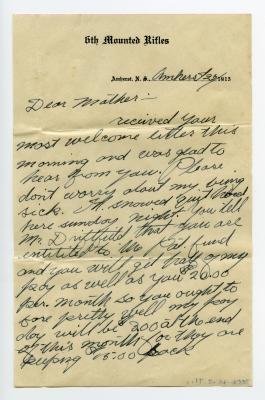 6th Mounted Rifles
Amherst, N. S., Amherst 1915
Dear Mother:—
recived your
most welcome letter this
morning and was glad to
hear from you. Please
don't worry about my being
sick. It snowed quit hard
here sunday night. You tell
Mr. that you are
entitled to the fund
and you will get half of my
pay as well as your $20.00
per. month so you ought to
pretty well my pay
day will be $ at the end
of this month for they are
keeping 15.00 back